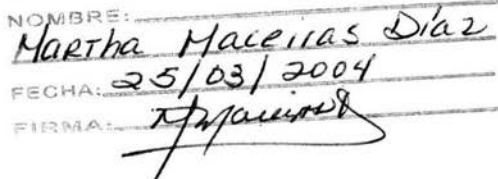 NOMBRE:
Martha Maceiras Díaz
FECHA: 25/03/2004
FIRMA: